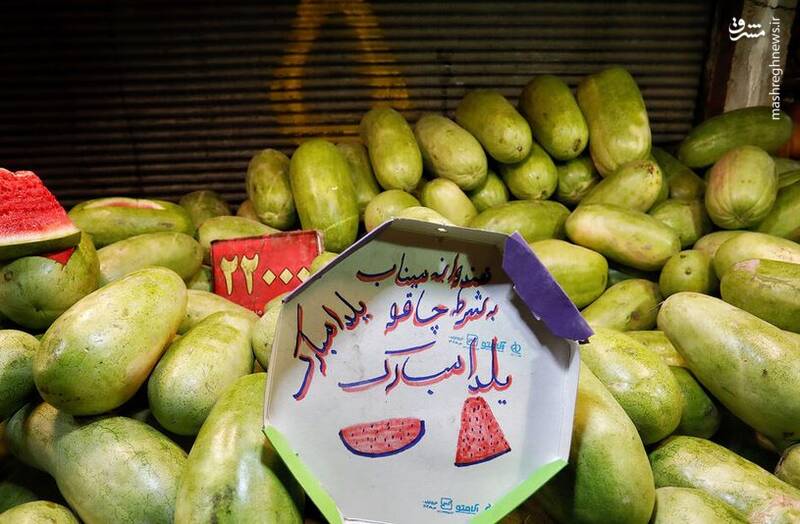 مشرق
mashreghnews.ir
۲۲۰۰۰
هندوانه میناب
به شرط چاقو
یلدا مبارک
یلدا مبارک